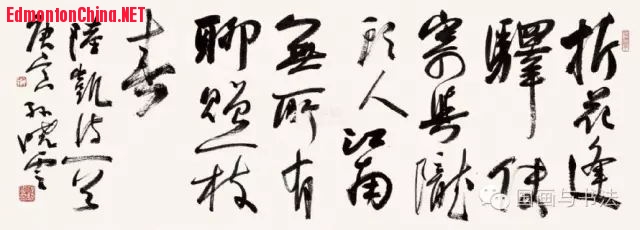 EdmontonChina.NET
折花逢
驛使
寄與隴
頭人江南
無所有
聊贈一枝
春
陸凱诗一首
庚寅孫曉雲
国画与书法